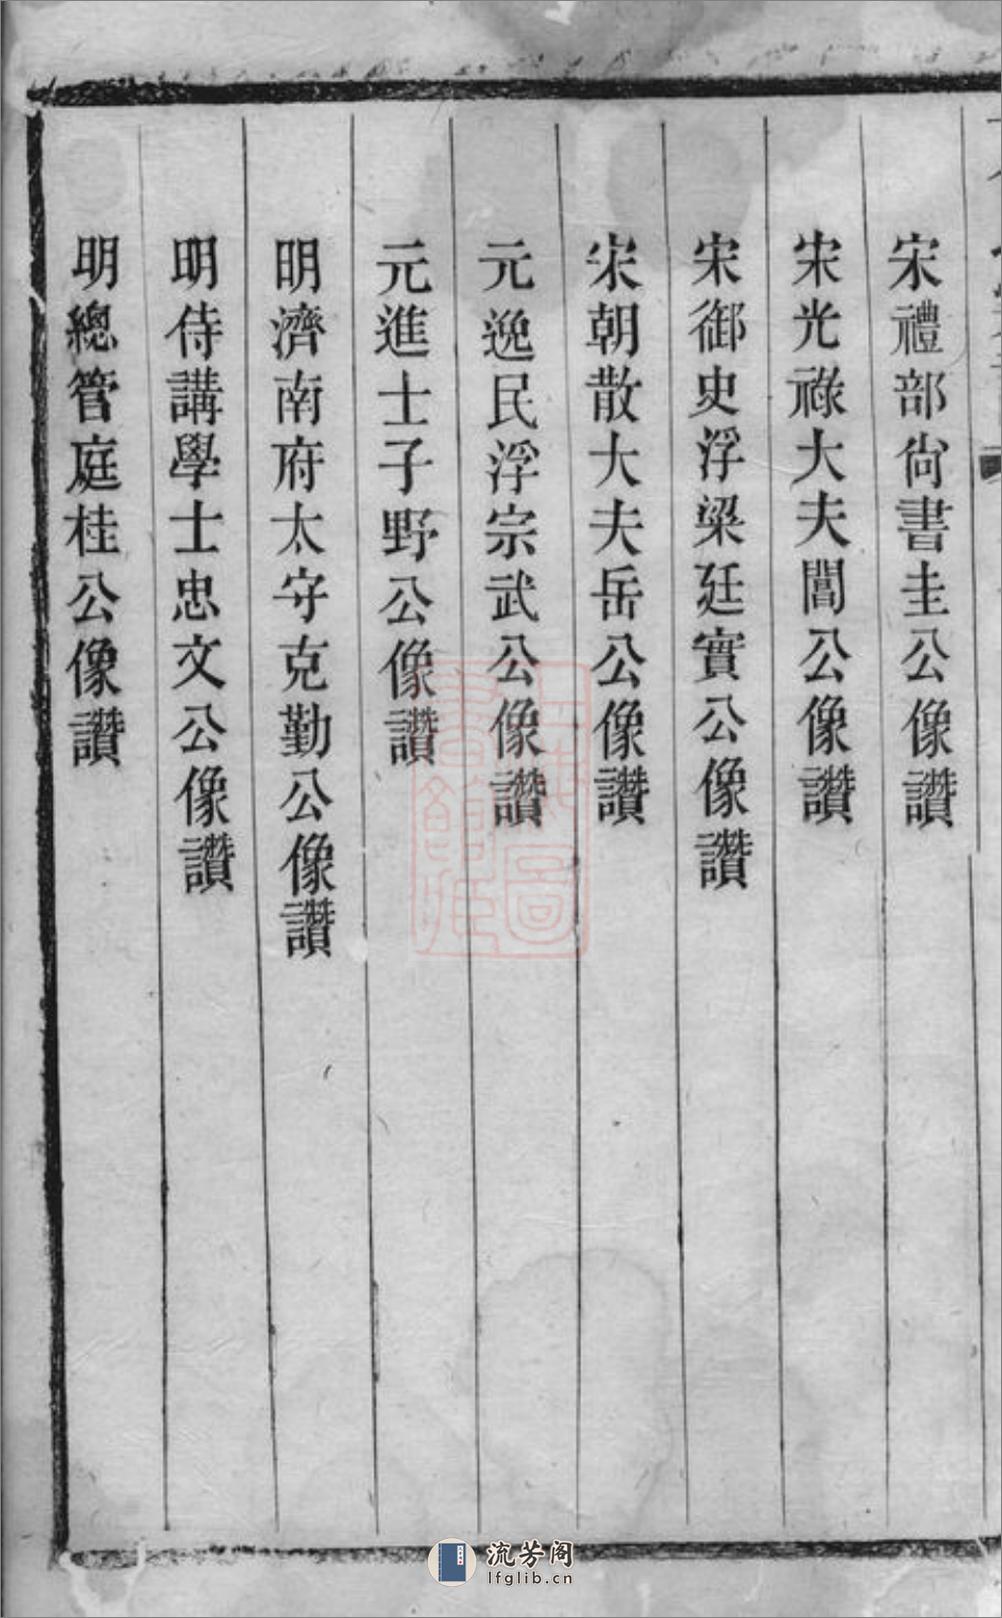 宋禮部尙書圭公像讚
宋光祿大夫閭公像讚
宋御史浮梁廷實公像讚
宋朝散大夫岳公像讚
元逸民浮宗武公像讚
元進士子野公像讚
明濟南府太守克勤公像讚
明侍講學士忠文公像讚
明總管庭桂公像讚
流芳阁
lfglib.cn